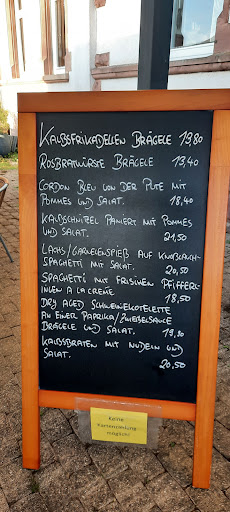 KALBSFRIKADELLEN BRÄGELE 19,80
ROSBRATWÜRSTE BRÄGELE 13,40
CORDON BLEU VON DER PUTE MIT
POMMES UND SALAT. 18,40
KALBSCHNITZEL PANIERT MIT POMMES
UND SALAT. 21,50
LACHS/GARNELENSPIEß AUF KNOBLAUCH-
SPAGHETTI MIT SALAT. 20,50
SPAGHETTI MIT FRISCHEN PFIFFERL-
INGEN A LA CREME. 18,50
DRY AGED SCHWEINEKOTELETTE
AN EINER PAPRIKA/ZWIEBELSAUCE
BRÄGELE UND SALAT. 19,80
KALBSBRATEN MIT NUDELN UND
SALAT. 20,50
Keine
Kartenzahlung
möglich!